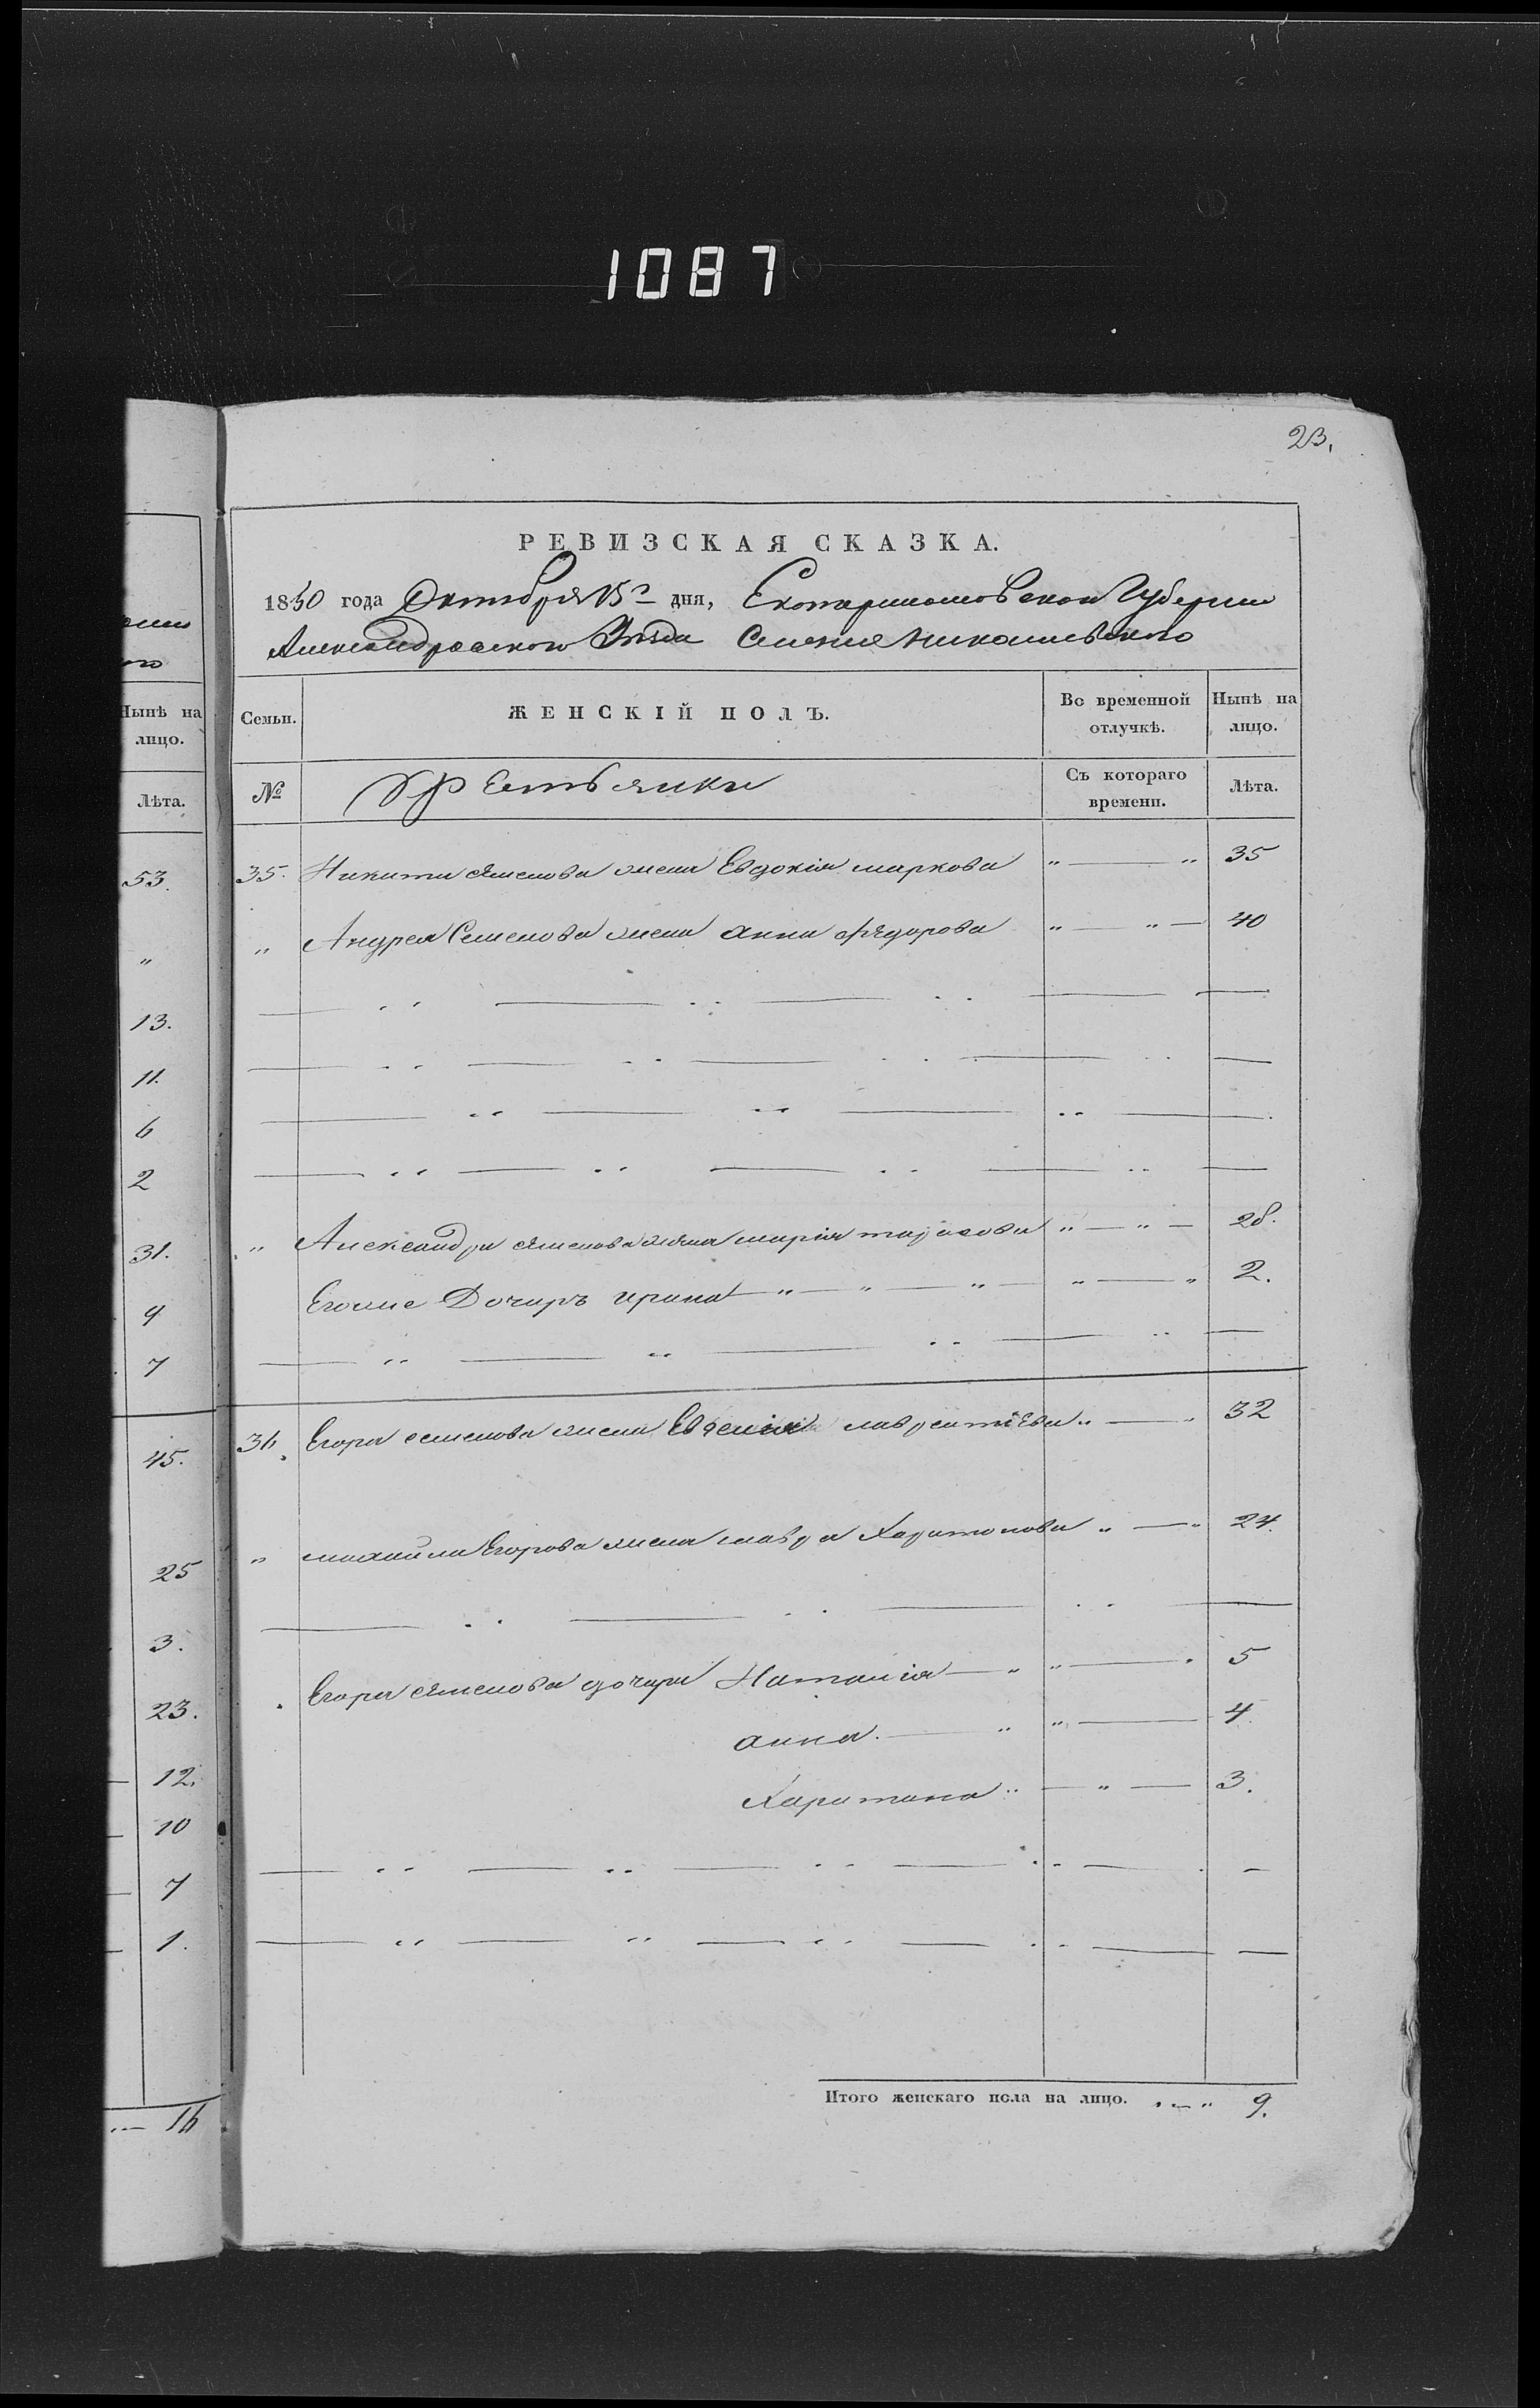 1087
23.
РЕВИЗСКАЯ СКАЗКА.
1850 года Октября 15го дня, Екатеринославской Губернии
Александровского Уезда Селения Николаевского
Нынѣ на лицо.
Лѣта.
53.
"
13.
11.
6
2
31.
9
7
45.
25
3.
23.
12.
10
7
1.
16
Семьи. ЖЕНСКІЙ ПОЛЪ. Во временной отлучкѣ. Нынѣ на лицо.
№ Крестьянки Съ котораго времени. Лѣта.
35. Никиты Семенова жена Евдокія маркова " — " 35
" Андрея Семенова жена анна Федорова " — " — 40
" Александра Семенова жена марія тарасова " — " — 28.
Егоже Дочарь ирина — " — " — " — " — " 2.
36. Егора семенова жена Евгенія лаврентіева " — " 32
" михайла Егорова жена мавра Харитонова " — " 24.
Егора Семенова дочери Наталія — " " — 5
анна. — " " — 4.
Харитина " — " — 3.
Итого женскаго пола на лицо. " — " 9.